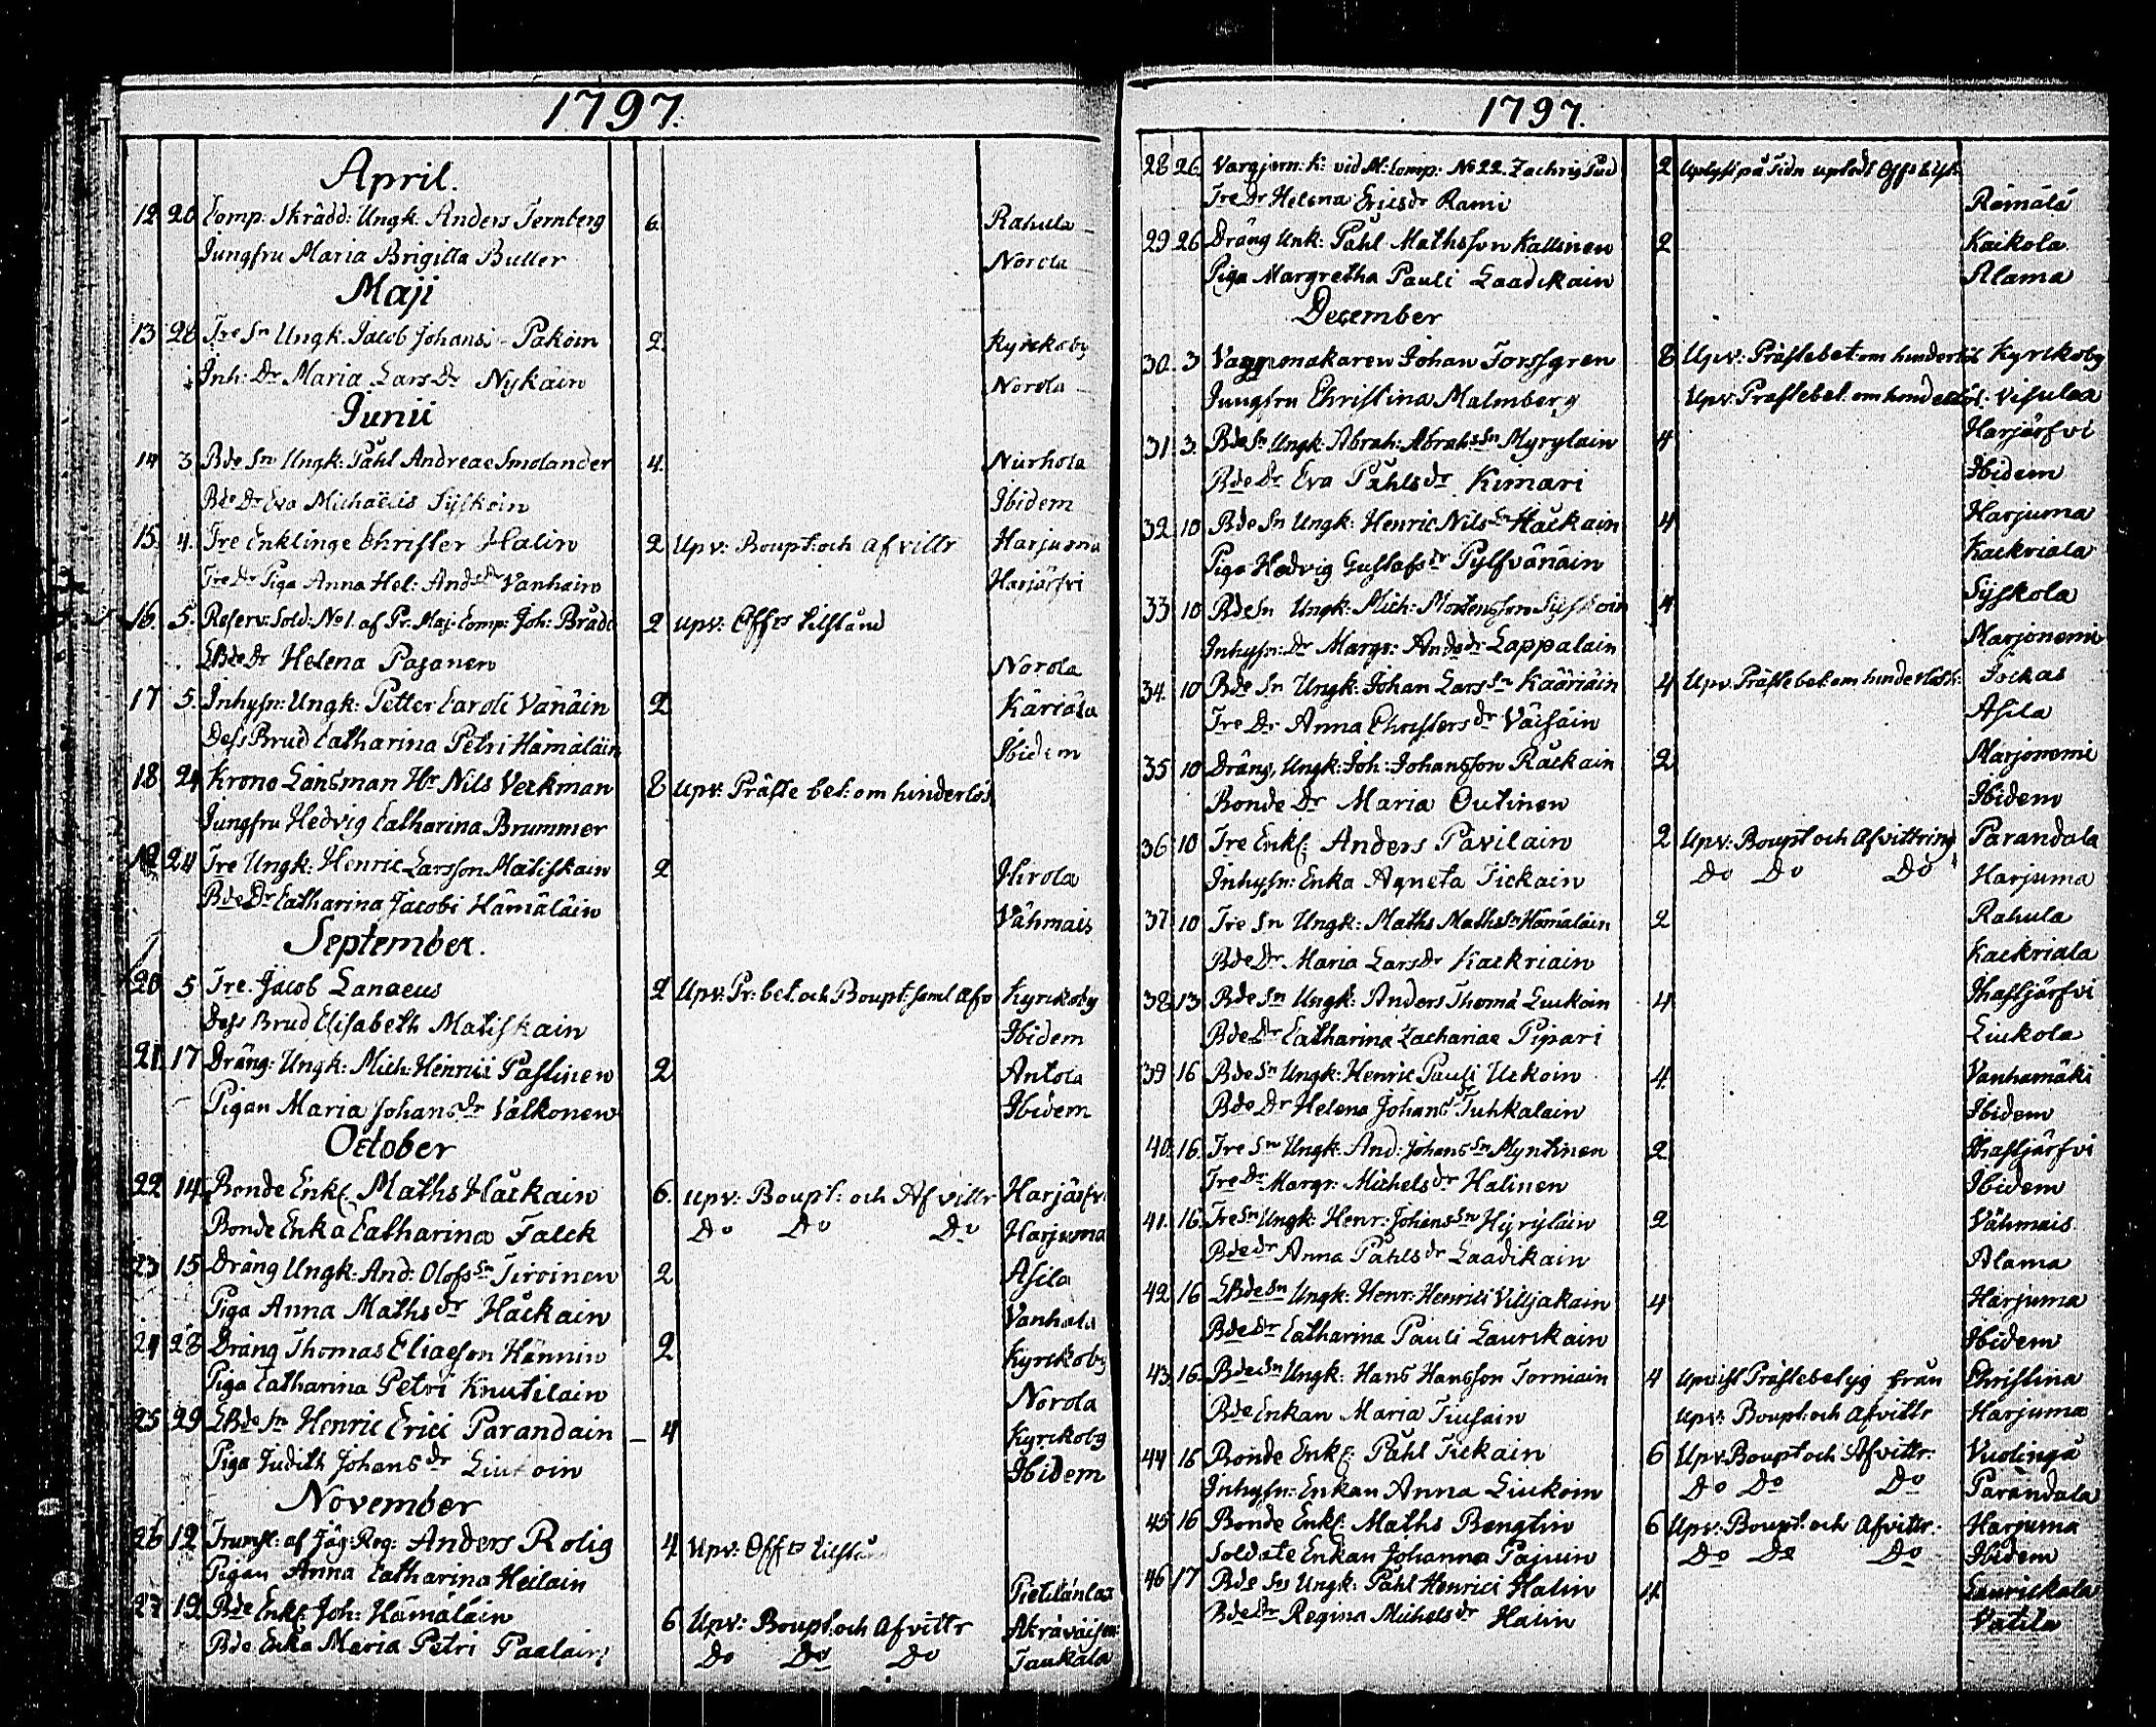 1797.
April.
12 20 Comp: Skrädd: Ungk. Anders Ternberg 6. Rahula
Jungfru Maria Brigitta Buller Norola
Maji
13 28 Tre Sn Ungk. Jacob Johans: Pakoin 2. Kyrckoby
Inh: Dr Maria Lars Dr Nykäin Norola
Junii
14 3 Bde Sn Ungk: Påhl Andreae Smolander 4. Nurhola
Bde Dr Eva Michaëlis Syskoin Ibidem
15. 4. Tre Enklinge Christer Halin 2 Upv: Boupt: och afvittr Harjuma
Tre Dr Piga Anna Hel: Ands Dr Vanhain Harjärfvi
16. 5. Reserv: Sold: No 1. af Pr. Maj: Comp: Joh: Brådd 2 upv: Offrs tilstånd
LBde Dr Helena Pasanen Norola
17 5. Inhysn: Ungk: Petter Caroli Vänäin 2 Käriäla
Dess Brud Catharina Petri Hämäläin Ibidem
18 24 Krono Länsman Hr Nils Veckman 8 Upv: Präste bet: om hinderlös
Jungfru Hedvig Catharina Brummer
19 24 Tre Ungk: Henric Larsson Matiskain 2 Hirola
Bde Dr Catharina Jacobi Hämäläin Vähmais
September.
20 5 Tre. Jacob Lanaeus 2 Upv: Pr: bet: och Boupt: saml afv Kyrckoby
Dess Brud Elisabeth Matiskain Ibidem
21. 17 Dräng: Ungk: Mich: Heinrici Paslinen 2 Antola
Pigan Maria Johans dr Valkonen Ibidem
October
22 14. Bonde Enkl. Maths Håckain 6. upv: Boupt: och Afvittr Harjärfv
Bonde Enka Catharina Falck Do Do Do Harjuma
23 15 Dräng Ungk: And: Olofs sn Tiroinen 2 Asila
Piga Anna Maths dr Håckain Vanhala
24 28 Dräng Thomas Eliaeson Hännin 2 Kyrckoby
Piga Catharina Petri Knutilain Norola
25 29 LBde Sn Henric Erici Parandain 4 Kyrckoby
Piga Judith Johans dr Liukoin Ibidem
November
26 12 Trumsl: af Jäg: Reg: Anders Rolig 4 Upv: Offrs tilstånd
Pigan Anna Catharina Heilain Pietilänlax
27 19 Bde Enkl: Joh: Hämäläin 6 Upv: Boupt: och Afvittr
Bde Enka Maria Petri Paalain Do Do Do Taukala
1797.
28 26. Vargjern: K: vid M: Comp: No 22. Zachris 2
Tre Dr Helena Erics dr Rami Rämälä
29 26 Dräng Unk: Påhl Mathsson Kallinen 2 Kaikola
Piga Margretha Pauli Laadikain Alama
December
30. 3 Vagnmakaren Johan Forssgren 8 Upv: Prästebet: om hinderlös Kyrckoby
Jungfru Christina Malmberg Upv: Prästebet: om hinderlös: Visulaa
31 3. Bde Sn Ungk: Abrah: Abrahs Sn Myrylain 4 Harjärfvi
Bde Dr Eva Påhls dr Kimari Ibidem
32 10 Bde Sn Ungk: Henric Nils Sn Håckain 4 Harjuma
Piga Hedvig Gustafs dr Pylfvänäin Kaekriala
33 10 Bde Sn Ungk: Mich: Mortensson Syskoin 4 Syskola
Inhysn: Dr Margr: Ands dr Lappalain Marjonemi
34. 10 Bde Sn Ungk: Johan Lars Sn Kääriäin 4 Upv: Prästebet: om hinderlösh: Jockas
Tre Dr Anna Christers dr Väisäin Asila
35 10 Dräng, Ungk: Joh: Johansson Räckain 2 Marjonemi
Bonde Dr Maria Outinen Ibidem
36 10 Tre Enkl: Anders Pavilain 2 Upv: Boupt och Afvittring Parandala
Inhysn: Enka Agneta Tickain Do Do Do Harjuma
37 10 Tre Sn Ungk: Maths Maths Sn Hämäläin 2 Rahula
Bde Dr Maria Lars Dr Kaekriain Kaekriala
38 13 Bde Sn Ungk: Anders Thomä Liukoin 4 Ihastjärfvi
Bde Dr Catharina Zachariae Pipari Liukola
39 16 Bde Sn Ungk: Henric Pauli Uckoin 4 Vanhamäki
Bde Dr Helena Johans dr Tuhkalain Ibidem
40. 16. Tre Sn Ungk. And: Johans Sn Myntinen 2 Ihastjärfvi
Tre Dr Margr: Michels dr Halinen Ibidem
41. 16. Tre Sn Ungk: Henr: Johans Sn Hyryläin 2 Vähmais
Bde dr Anna Påhls dr Laadikain Alama
42 16 LBde Sn Ungk: Henr: Henrici Viljakain 4 Harjuma
Bde Dr Catharina Pauli Laurickain Ibidem
43 16. Bde Sn Ungk: Hans Hansson Torniain 4 Upvist Prästebetyg från Christina
Bde Enkan Maria Tiusain upv: Boupt: och Afvittr Harjuma
44 16 Bonde Enkl: Påhl Tickain 6 Upv: Boupt och Afvittr. Vuolinga
Inhysn: Enkan Anna Liukoin Do Do Do Parandala
45 16 Bonde Enkl: Maths Bengtin 6 Upv: Boupt: och Afvittr. Harjuma
Soldate Enkan Johanna Pajuin Do Do Do Ibidem
46 17 Bde Sn Ungk: Påhl Henrici Halin 4 Laurickala
Bde Dr Regina Michels dr Halin Vatila